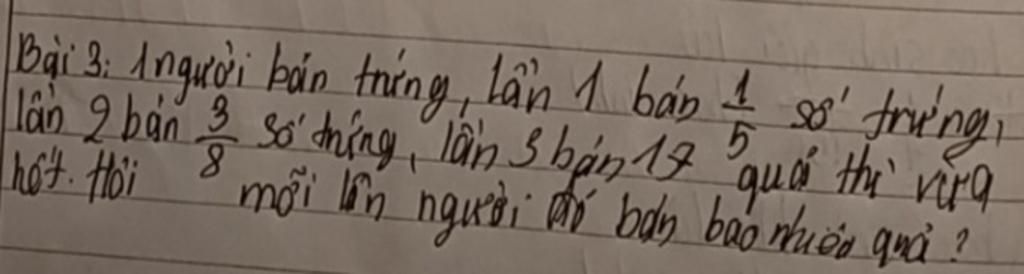 Bài 3: 1 người bán trứng, lần 1 bán 1/5 số trứng,
lần 2 bán 3/8 số trứng, lần 3 bán 17 quả thì vừa
hết. Hỏi mỗi lần người đó bán bao nhiêu quả?